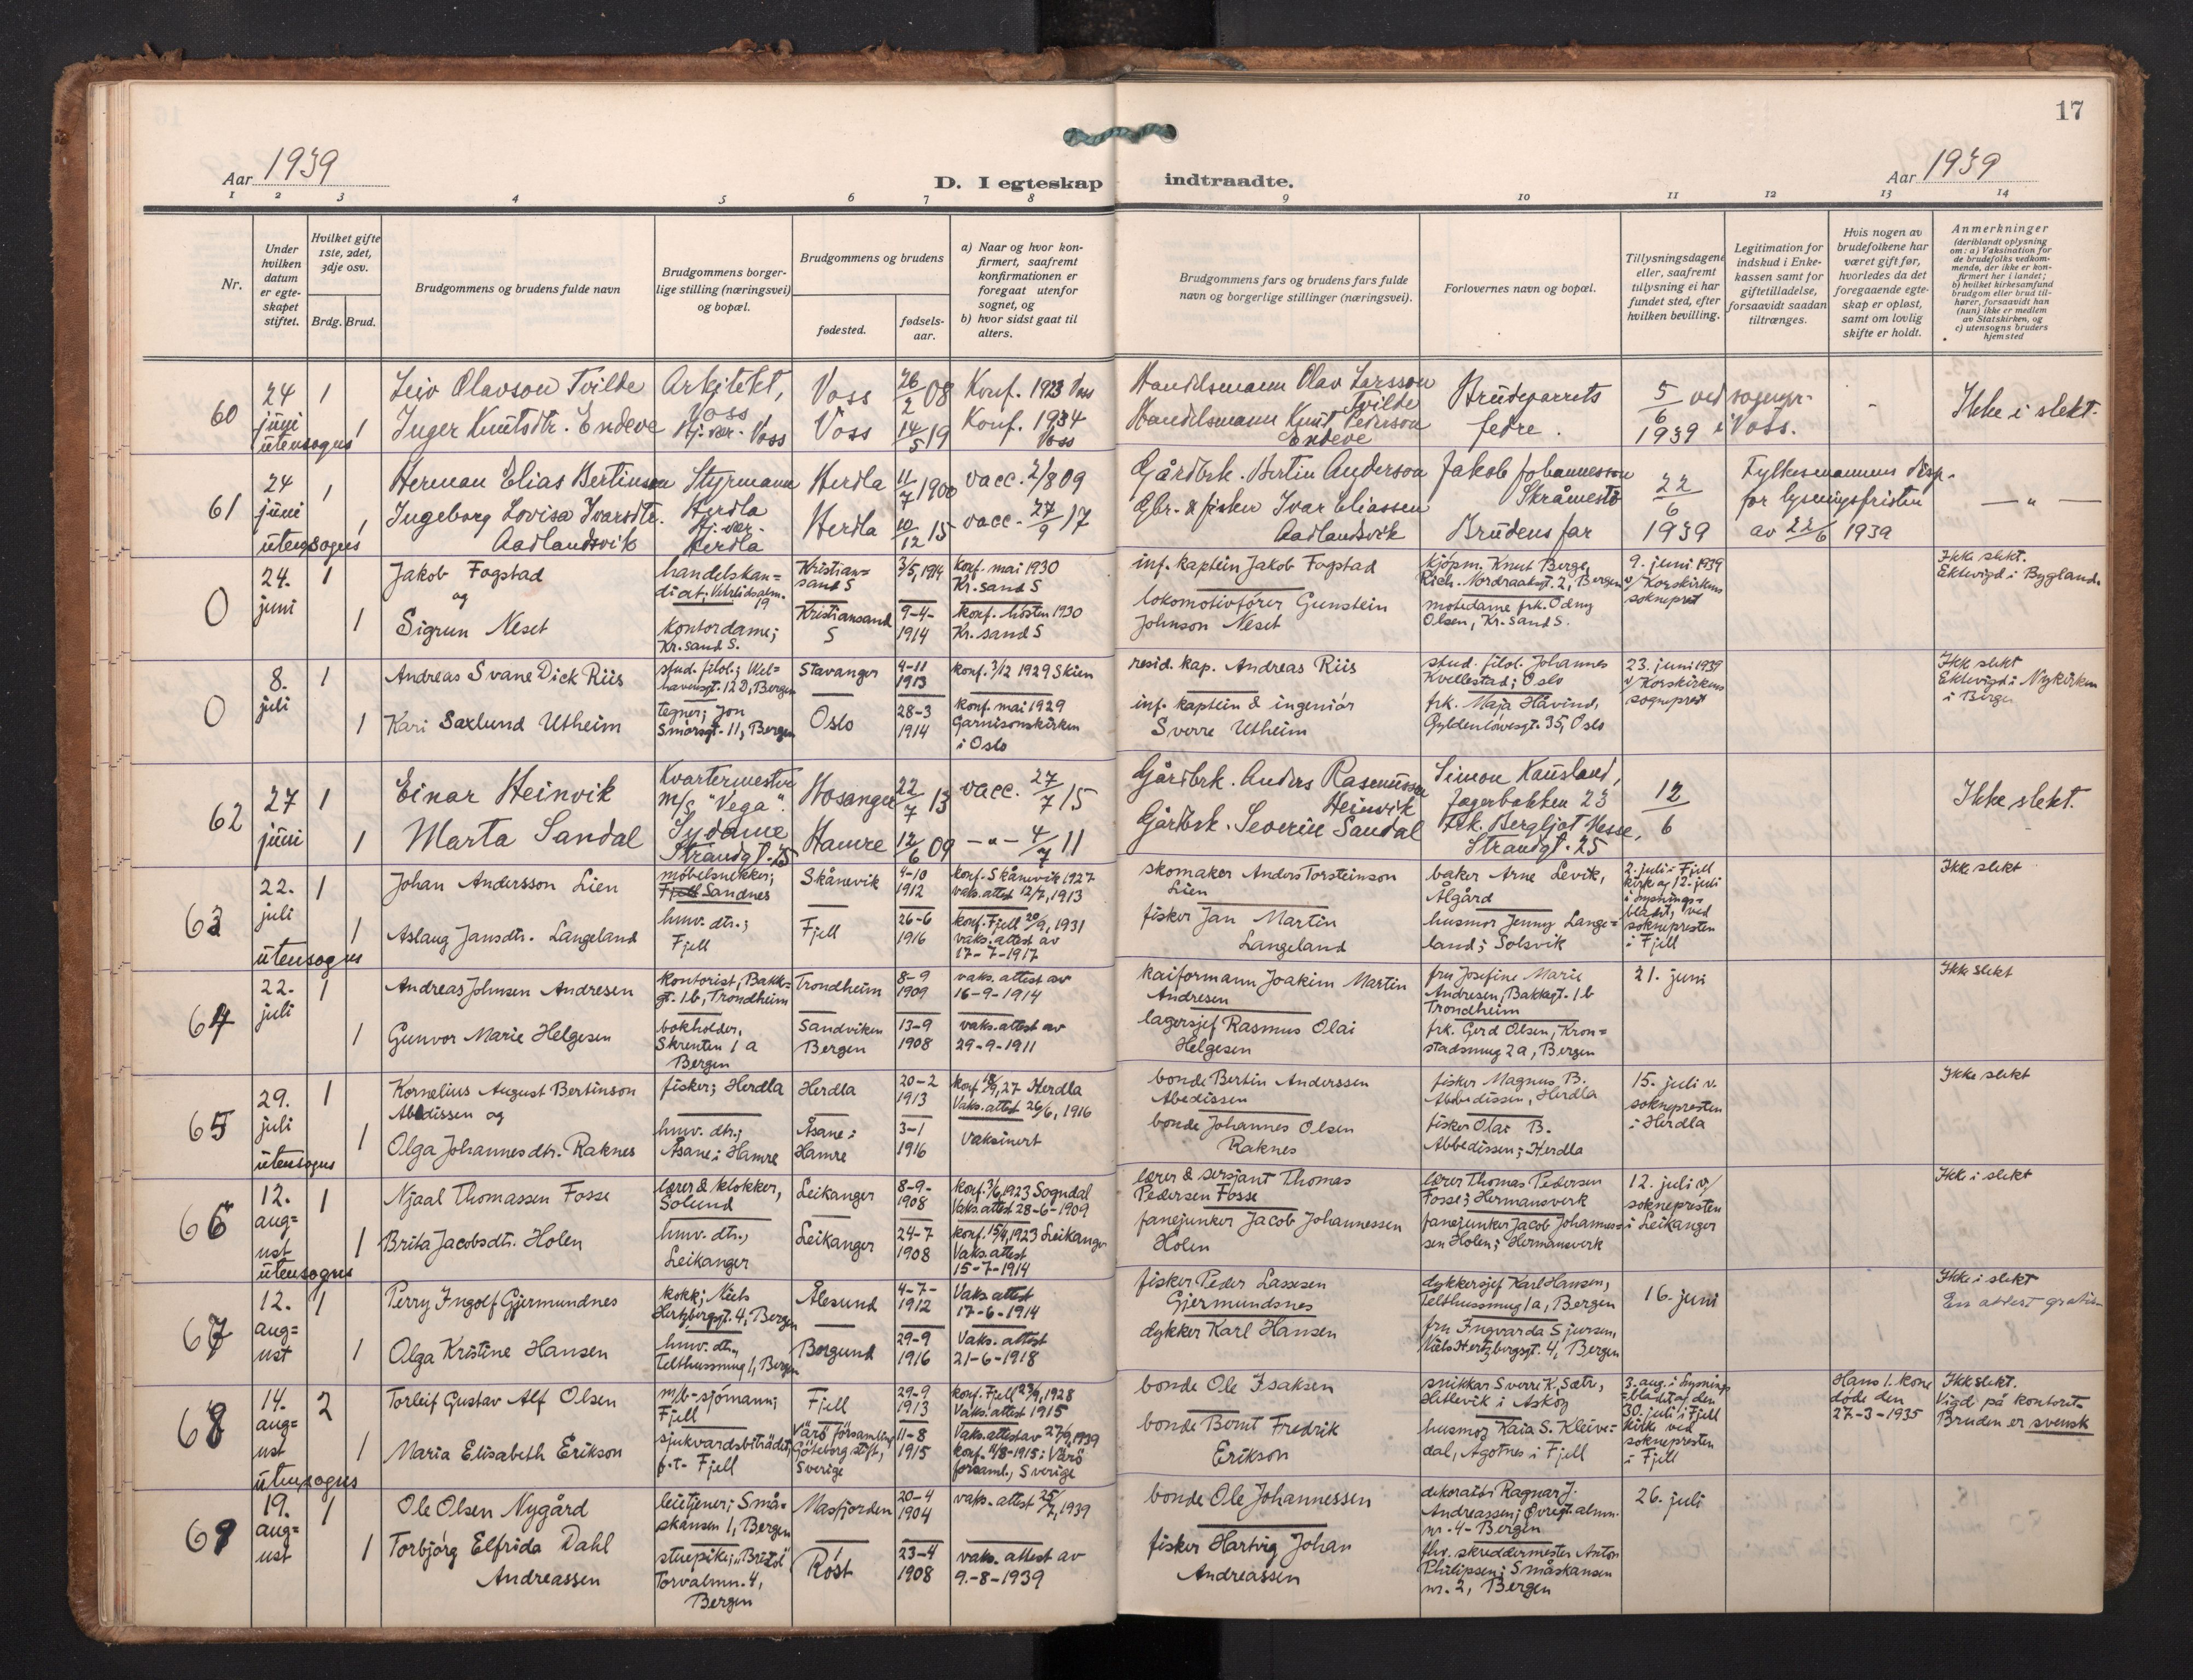 17
Aar 1939
D. I egteskap indtraadte.
Aar 1939
1 2 3 4 5 6 7 8 9 10 11 12 13 14
Nr.
Under hvilken datum er egteskapet stiftet.
Hvilket gifte 1ste, 2det, 3dje osv.
Brdg. Brud.
Brudgommens og brudens fulde navn
Brudgommens borgerlige stilling (næringsvei) og bopæl.
Brudgommens og brudens
fødested.
fødselsaar.
a) Naar og hvor konfirmert, saafremt konfirmationen er foregaat utenfor sognet, og
b) hvor sidst gaat til alters.
Brudgommens fars og brudens fars fulde navn og borgerlige stillinger (næringsvei).
Forlovernes navn og bopæl.
Tillysningsdagene eller, saafremt tillysning ei har fundet sted, efter hvilken bevilling.
Legitimation for indskud i Enkekassen samt for giftetilladelse, forsaavidt saadan tiltrænges.
Hvis nogen av brudefolkene har været gift før, hvorledes da det foregaaende egteskap er opløst, samt om lovlig skifte er holdt.
Anmerkninger
(deriblandt oplysning om: a) Vaksination for de brudefolks vedkommende, der ikke er konfirmert her i landet; b) hvilket kirkesamfund brudgom eller brud tilhører, forsaavidt han (hun) ikke er medlem av Statskirken, og c) utensogns bruders hjemsted
60 24 juni utensogns 1 Leiv Olavson Tvilde Arkitekt, Voss Voss 26/2 08 Konf. 1923 Voss Handelsmann Olav Larsson Tvilde Brudeparrets fedre. 5/6 1939 ved sognepr. i Voss. - Ikke i slekt.
1 Inger Knutsdtr. Endeve Hj. vær. Voss Voss 14/5 19 Konf. 1934 Voss Handelsmann Knut Pederson Endeve
61 24 juni utensogns 1 Herman Elias Bertinson Styrmann Herdla Herdla 11/7 1900 vacc. 2/8 09 Gårdbrk. Bertin Anderson Jakob Johannesson Skråmestø 22/6 1939 Fylkesmannens disp. for lysningsfristen av 22/6 1939 — " —
1 Ingeborg Lovisa Ivarsdtr. Aadlandsvik Hj. vær. Herdla Herdla 10/12 15 vacc. 27/9 17 Gbr. & fisker Ivar Eliassen Aadlandsvik Brudens far
0 24. juni 1 Jakob Fogstad og handelskandidat; Vetrlidsalm. 19 Kristiansand S 3/5, 1914 konf. mai 1930 Kr. sand S inf. kaptein Jakob Fogstad kjøpm. Knut Berge, Rich. Nordraaksgt. 2, Bergen 9. juni 1939 v/ Korskirkens sokneprest Ikke slekt. Ektevigd i Bygland.
1 Sigrun Neset kontordame; Kr. sand S. Kristiansand S 9-4-1914 konf. høsten 1930 Kr. sand S lokomotivfører Gunstein Johnson Neset motedame frk. Odny Olsen, Kr. sand S.
0 8. juli 1 Andreas Svane Dick Riis stud. filol.; Welhavensgt. 12 D, Bergen Stavanger 4-11 1913 konf. 3/12 1929 Skien resid. kap. Andreas Riis stud. filol. Johannes Kvellestad; Oslo 23. juni 1939 v/ Korskirkens sogneprest Ikke slekt Ektevigd i Nykirken i Bergen
1 Kari Saxlund Utheim tegner; Jon Smørsgt. 11, Bergen Oslo 28-3 1914 konf. mai 1929 Garnisonskirken i Oslo inf. kaptein & ingeniør Sverre Utheim frk. Maja Håvind, Gyldenløvesgt. 35, Oslo
62 27 juni 1 Einar Heinvik Kvartermester m/s "Vega" Hosanger 22/7 13 vacc. 27/7 15 Gårdbrk. Anders Rasmusson Heinvik Simon Kausland, Fagerbakken 23 12/6 Ikke slekt.
1 Marta Sandal Sydame Strandgt. 25 Hamre 12/6 09 — " — 4/7 11 Gårdbrk. Severin Sandal Frk. Bergljot Hesse, Strandgt. 25
63 22. juli utensogns 1 Johan Andersson Lien møbelsnekker; Fjell Sandnes Skånevik 4-10 1912 konf. Skånevik 1927 vaks. attest 12/7, 1913 skomaker Anders Torsteinson Lien baker Arne Levik, Ålgård 2. juli i Fjell kirke og 12. juli i Lysningsbladet, ved soknepresten i Fjell Ikke slekt
1 Aslaug Jansdtr. Langeland hmv. dtr.; Fjell Fjell 26-6 1916 konf. Fjell 20/9, 1931 vaks. attest av 17-7-1917 fisker Jan Martin Langeland husmor Jenny Langeland; Solsvik
64 22. juli 1 Andreas Johnsen Andresen kontorist; Bakkgt. 1b, Trondheim Trondheim 8-9 1909 vaks. attest av 16-9-1914 kaiformann Joakim Martin Andresen fru Josefine Marie Andresen, Bakkegt. 1b Trondheim 21. juni Ikke slekt
1 Gunvor Marie Helgesen bokholder, Skrenten 1 a Bergen Sandviken Bergen 13-9 1908 vaks. attest av 29-9-1911 lagersjef Rasmus Olai Helgesen frk. Gerd Olsen, Kronstadsmug 2a, Bergen
65 29. juli utensogns 1 Kornelius August Bertinson Abedissen og fisker; Herdla Herdla 20-2 1913 konf. 18/9, 27 Herdla Vaks. attest 26/6, 1916 bonde Bertin Anderssen Abedissen fisker Magnus B. Abbedissen, Herdla 15. juli v. soknepresten i Herdla Ikke slekt
1 Olga Johannesdtr. Raknes hmv. dtr.; Åsane i Hamre Åsane i Hamre 3-1 1916 Vaksinert bonde Johannes Olsen Raknes fisker Olai B. Abbedissen; Herdla
66 12. august utensogns 1 Njaal Thomassen Fosse lærer & klokker, Solund Leikanger 8-9-1908 konf. 3/6, 1923 Sogndal Vaks. attest 28-6-1909 lærer & sersjant Thomas Pedersen Fosse lærer Thomas Pedersen Fosse; Hermansverk 12. juli v/ soknepresten i Leikanger Ikke i slekt
1 Brita Jacobsdtr. Holen hmv. dtr., Leikanger Leikanger 24-7 1908 konf. 15/4, 1923 Leikanger Vaks. attest 15-7-1914 fanejunker Jacob Johannessen Holen fanejunker Jacob Johannessen Holen; Hermansverk
67 12. august 1 Perry Ingolf Gjermundnes kokk; Niels Hertzbergsgt. 4, Bergen Ålesund 4-7-1912 Vaks attest 17-6-1914 fisker Peder Lassesen Gjermundsnes dykkersjef Karl Hansen, Telthussmug 1a, Bergen 16. juni Ikke i slekt En attest gratis
1 Olga Kristine Hansen hmv. dtr., Telthussmug 1, Bergen Borgund 29-9 1916 Vaks. attest 21-6-1918 dykker Karl Hansen fru Ingvarda Sjursen, Niels Hertzbergsgt. 4, Bergen
68 14. august utensogns 2 Torleif Gustav Alf Olsen m/b-sjømann; Fjell Fjell 29-9 1913 konf. Fjell 23/9, 1928 Vaks. attest 1915 bonde Ole Isaksen snikkar Sverre K. Sætr, Hetlevik i Askøy 3. aug. i Lysningsbladet og den 30. juli i Fjell kirke ved soknepresten i Fjell Hans 1. kone døde den 27-3-1935 Ikke slekt. Vigd på kontoret. Bruden er svensk
1 Maria Elisabeth Erikson sjukvardsbiträdet, p.t. Fjell Värö församling Göteborg stift, Sverige 11-8 1915 Vaks. attest av 27/9, 1939 konf. 11/8-1915 i Värö forsaml., Sverige bonde Bernt Fredrik Erikson husmor Kaia S. Kleivedal, Ågotnes i Fjell
69 19. august 1 Ole Olsen Nygård leietjener; Småskansen 1, Bergen Masfjorden 20-4 1904 vaks. attest 25/7, 1939 bonde Ole Johannessen dekoratør Ragnar J. Andreassen; Øvregt. almn. nr. 4 - Bergen 26. juli
1 Torbjørg Elfrida Dahl Andreassen stuepike; "Bristol" Torvalmn. 4, Bergen Røst 23-4 1908 vaks. attest av 9.-8-1939 fisker Hartvig Johan Andreassen fhv. skreddermester Anton Philipsen; Småskansen nr. 2, Bergen